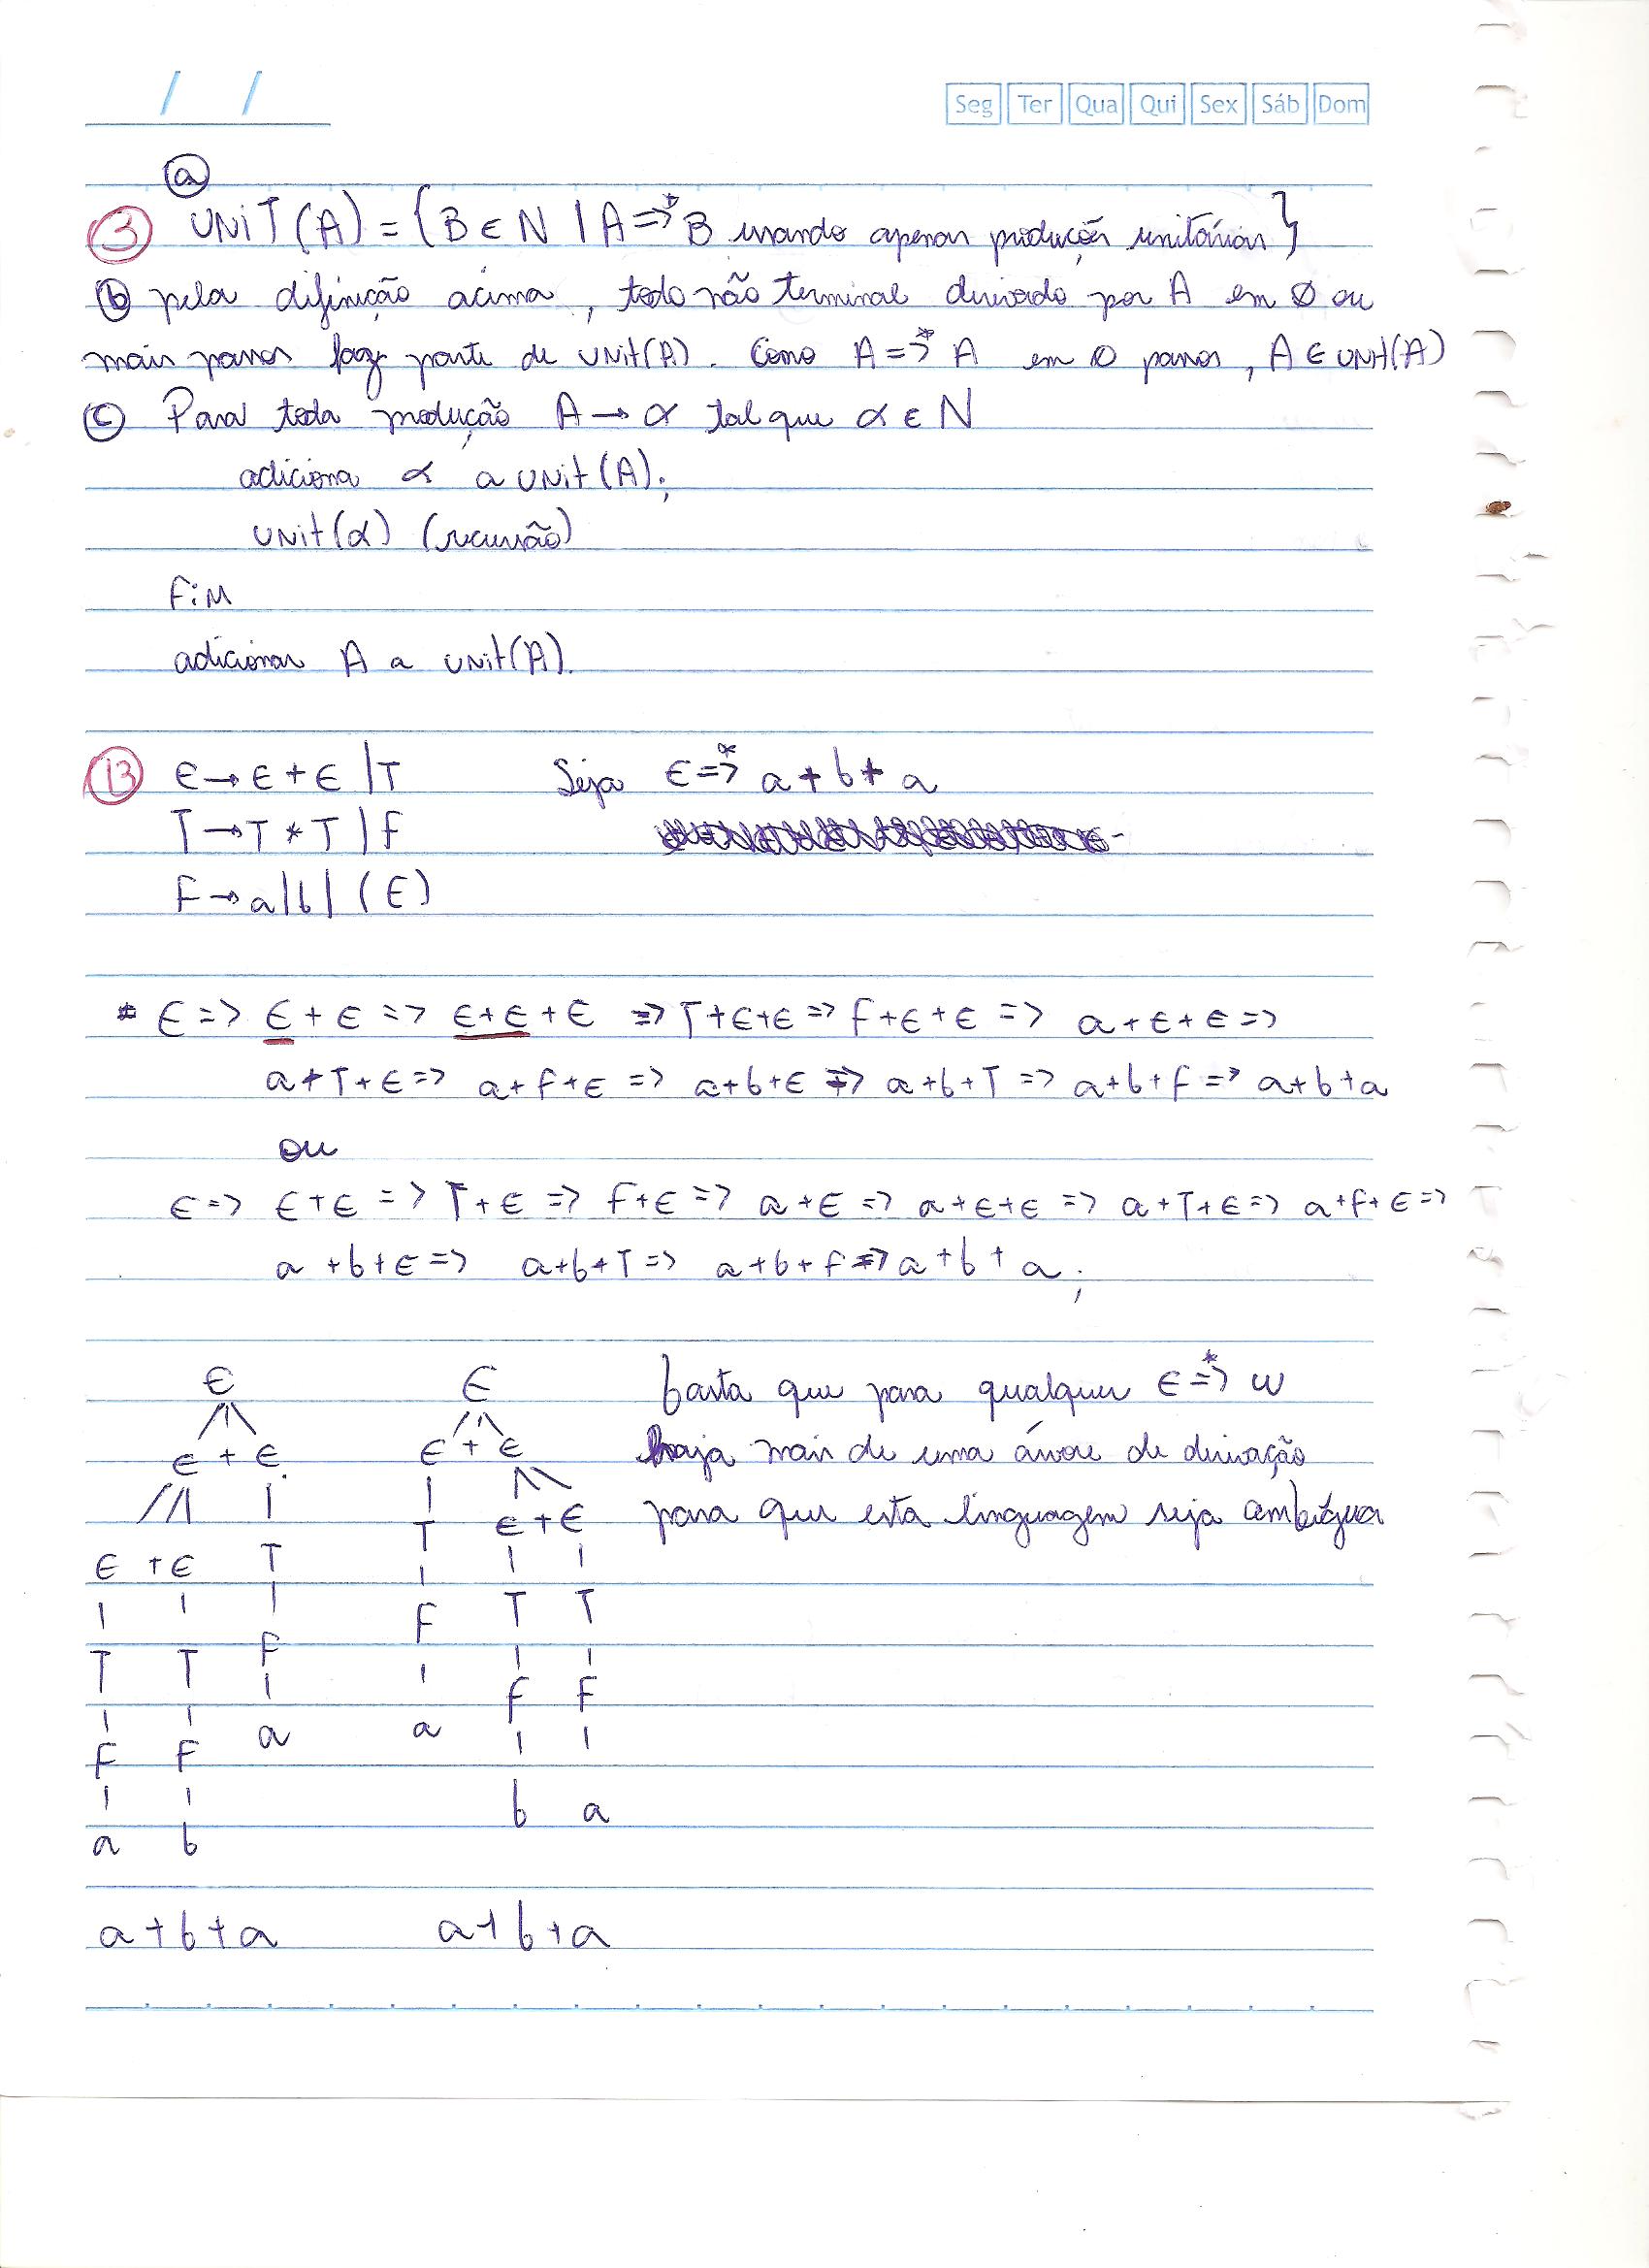 / /
Seg Ter Qua Qui Sex Sáb Dom
a
3 UNIT(A) = {B ∈ N | A =>* B usando apenas produções unitárias}
b pela difinição acima, todo não terminal derivado por A em 0 ou
mais passos faz parte de UNit(A). Como A =>* A em 0 passos, A ∈ UNit(A)
c Para toda produção A → α tal que α ∈ N
adiciona α a UNit(A);
UNit(α) (recursão)
FiM
adicionar A a UNit(A).
13 E → E + E | T Seja E =>* a + b + a
T → T * T | F
F → a | b | (E)
* E => E + E => E + E + E => T + E + E => F + E + E => a + E + E =>
a + T + E => a + F + E => a + b + E => a + b + T => a + b + F => a + b + a
ou
E => E + E => T + E => F + E => a + E => a + E + E => a + T + E => a + F + E =>
a + b + E => a + b + T => a + b + F => a + b + a;
E E basta que para qualquer E =>* w
E + E E + E haja mais de uma árvore de derivação
T E + E para que esta linguagem seja ambígua
E + E T
F T T
T T F
F F
a a
F F
b a
a b
a + b + a a + b + a